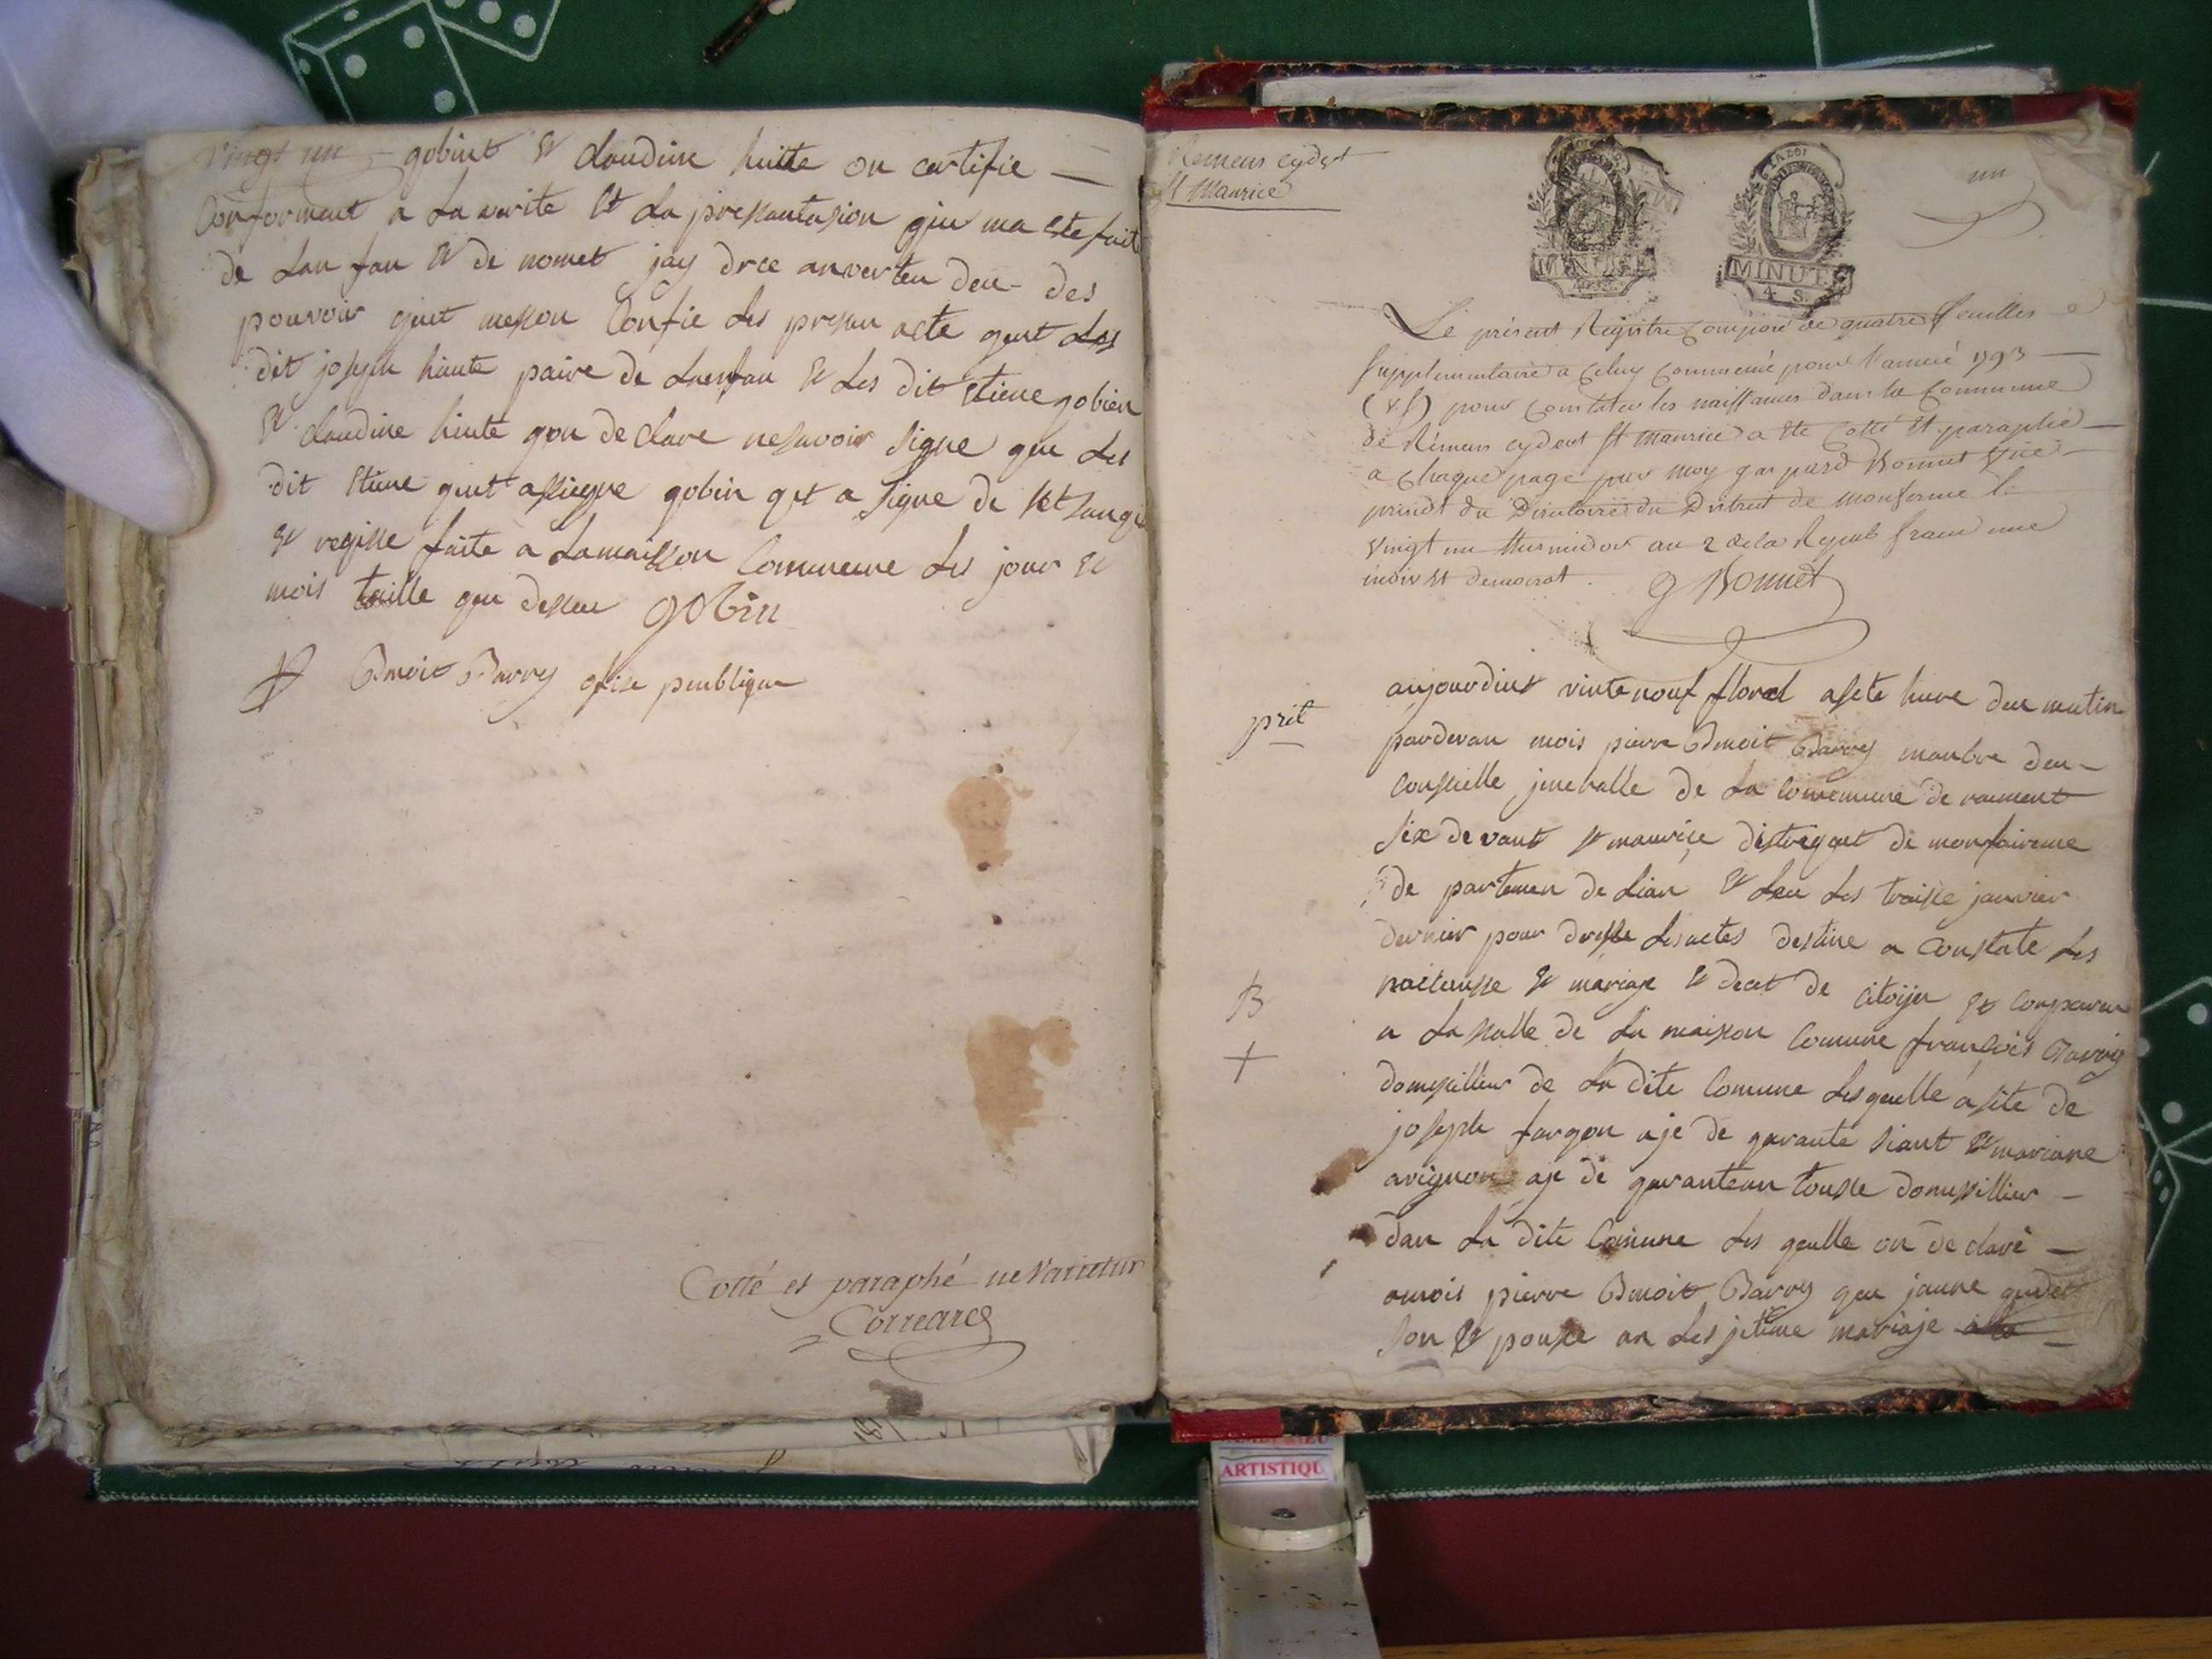 vingt un gobint et claudine huitte on certifie —
Conforment a La verite Et La pressantasion que ma Ete fait
de Lan fan et de nomet jay drce anverteu deu - des
pouvoir quet messon Confie Les presan acte quet Les
dit joseph hiute paire de Lanfan et Les dit Etiene gobien
et claudine hiute qon declare nesavoir Signe que Les
dit Etiene quet assiegne gobin qet a Signe de
et regisse faite a Lamaisson Comuneune Les jour et
mois quu desseu gobin
Benoit Barry ofise peublique
Cotté et paraphé ne varietur
Correard
Remens cydet
St Maurice
un
MINUTE
MINUTE
4 S.
Le présent Registre Composé de quatre feuilles
Supplementaire a Celuy Commencé pour l'année 1793 —
(v s) pour Constater les naissances dans la Commune
de Rémens cydevt St Maurice a Ete Cotté Et paraphé —
a Chaque page par moy gaspard Bonnet vice
presidt du Directoire du District de monferme le
vingt un thermidor an 2 de la Repub francaise une
indiv et democrat. G Bonnet
aujourdiut vinte nouf floral asete hure deu matin
prêt
pardevan mois pierre Benoit Barry manbre deu -
Conseielle jeneralle de La Comemune de raiment
Six devant St maurice distriquet de monfairme
de partemen de Lian et Leu Les traisse janvier
dernier pour dresse Lesactes destine a Constate Les
naiseansse et mariaje et decet de citoyen et Conparu
B
a La salle de La maisson Comune françois Barry
+
domissillier de La dite Comune Lesquelle asité de
joseph fargon aje de quarante siant et mariane
avignon aje de quaranteun tousse domissillier —
dan La dite Comune Les quelle on declaré —
amois pierre Benoit Barry que jaune
son Epouse an Lesjetime mariaje
ARTISTIQU